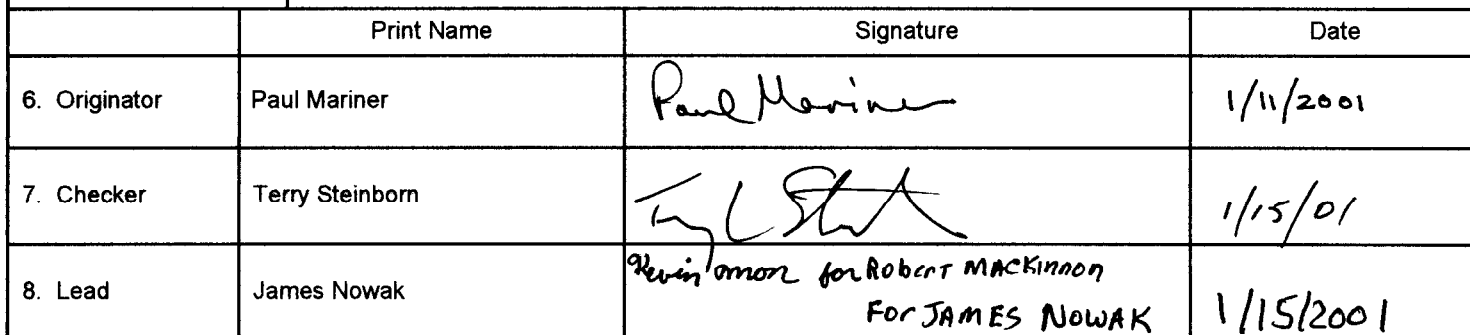 Print Name Signature Date
6. Originator Paul Mariner Paul Mariner 1/11/2001
7. Checker Terry Steinborn Terry L 1/15/01
8. Lead James Nowak Kevin Mon for Robert MacKinnon
For JAMES NOWAK 1/15/2001